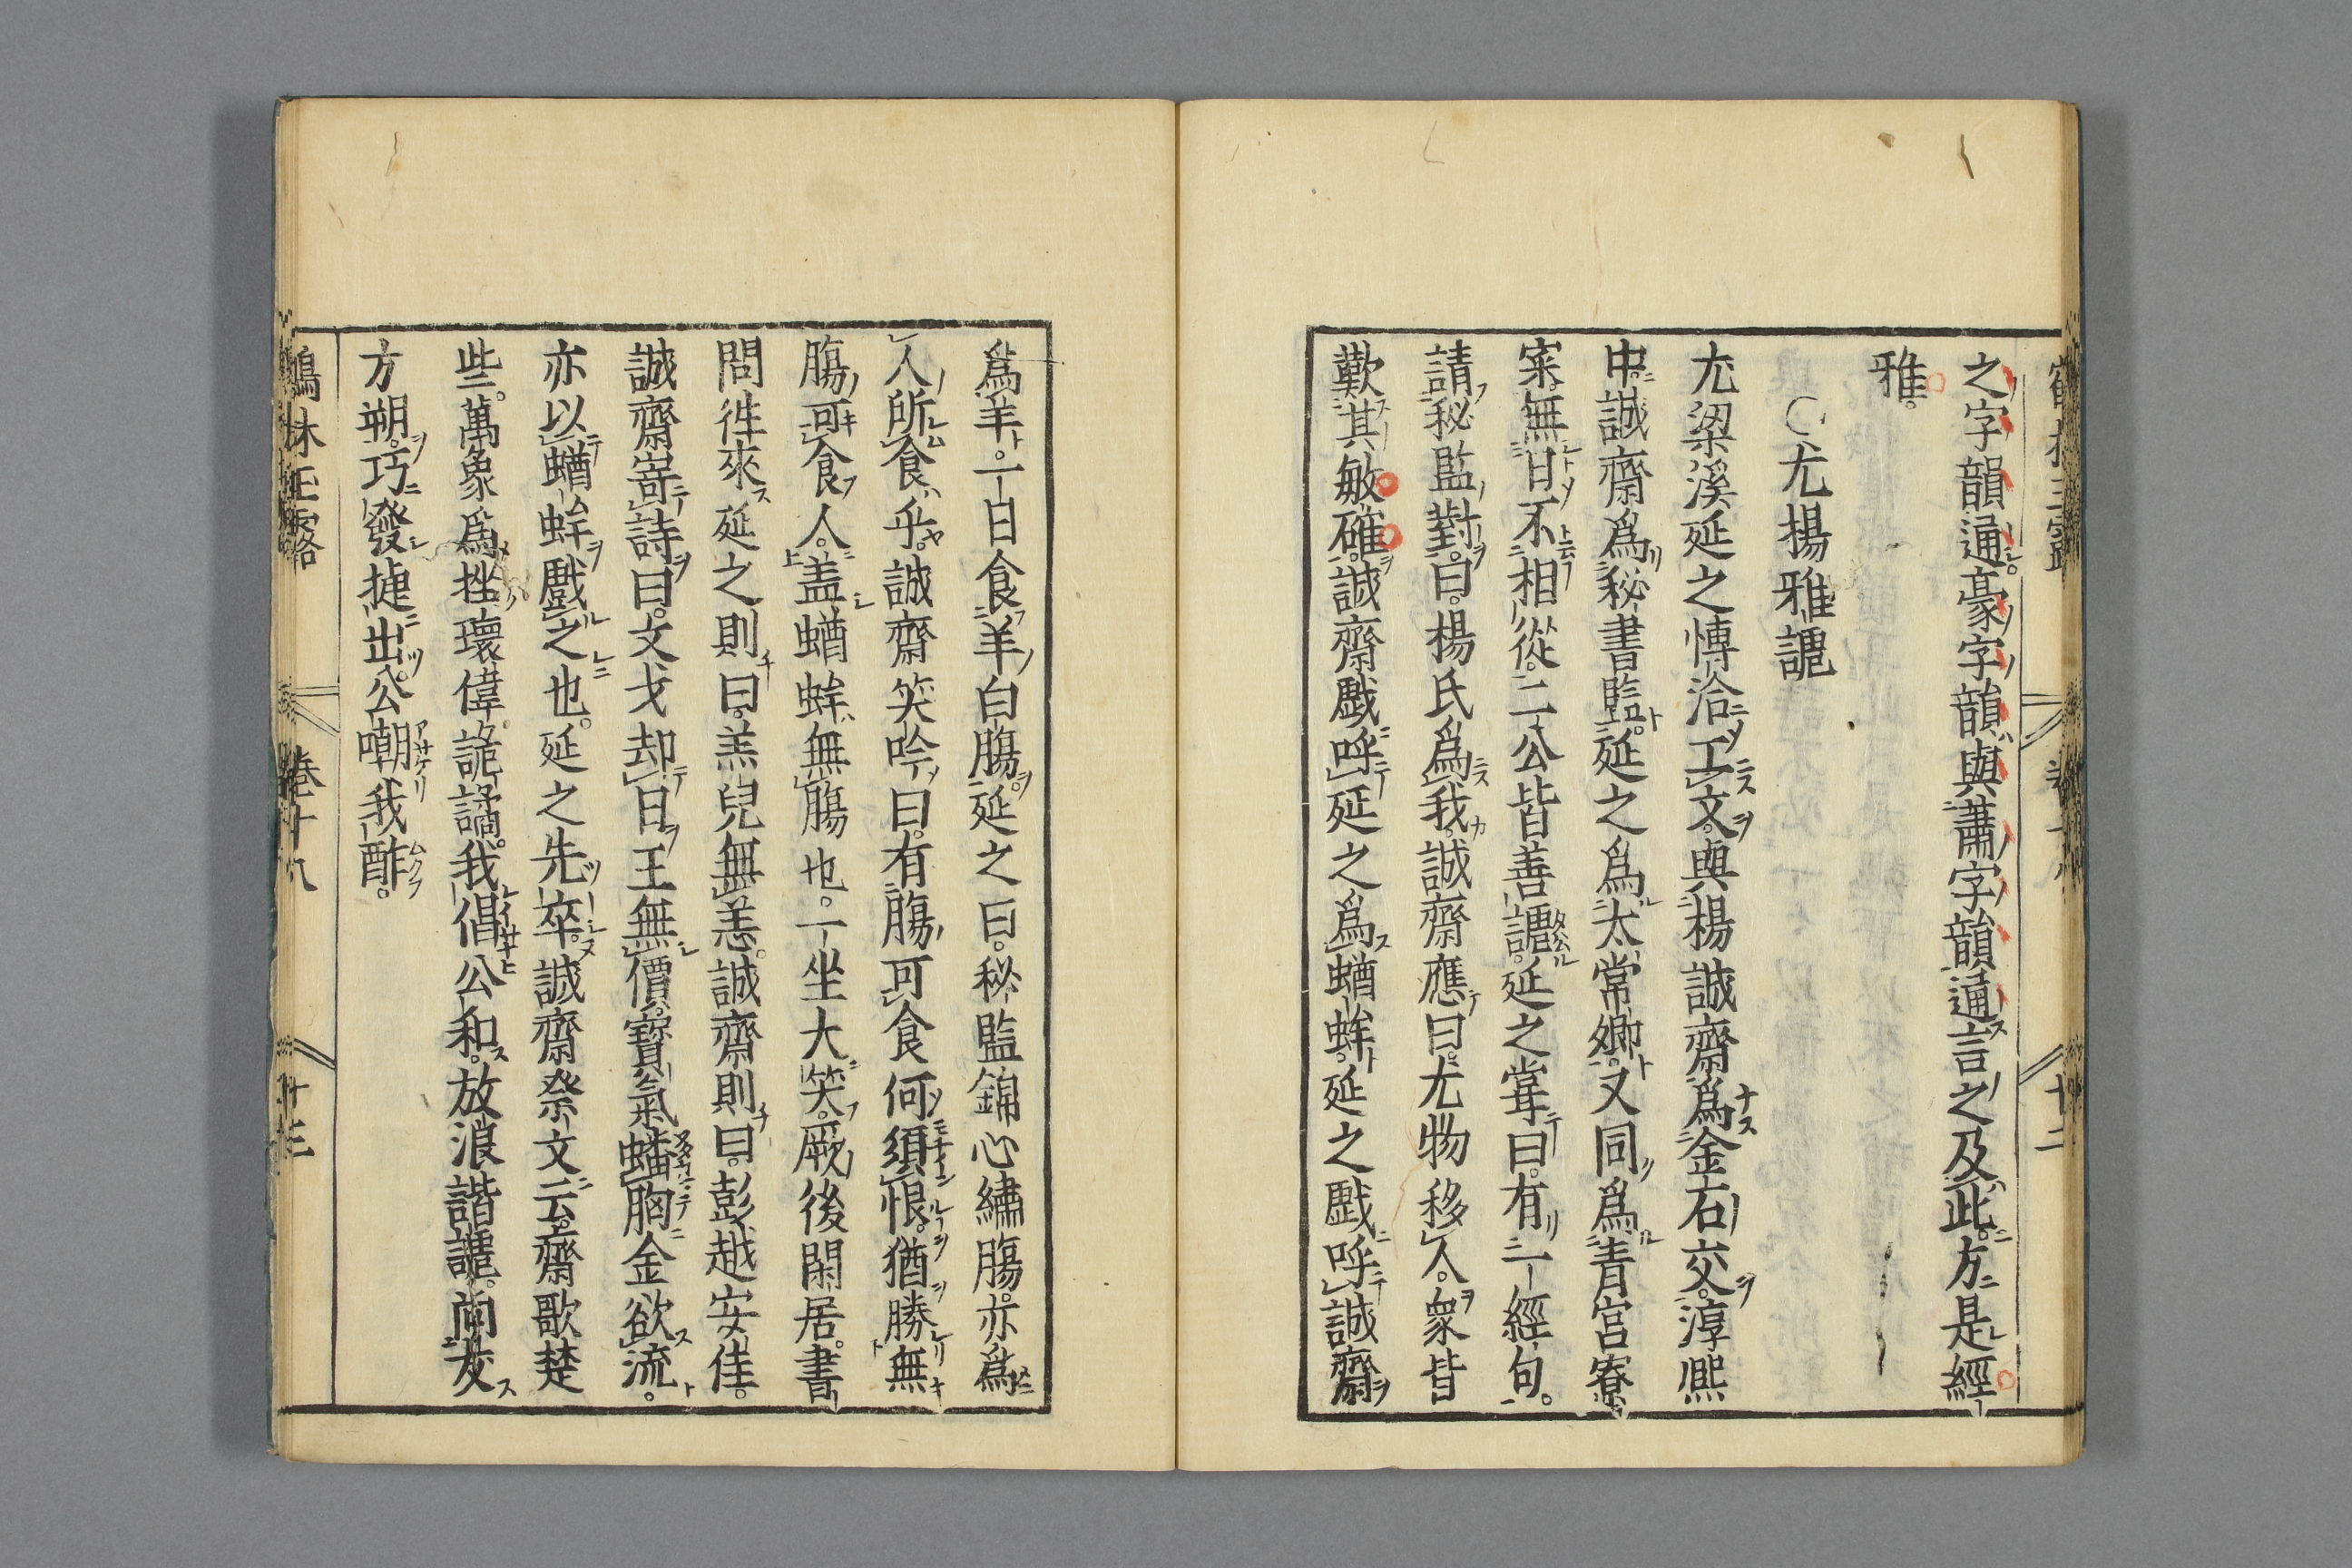 之字韻通豪字韻與蕭字韻通言之及此方是經
雅。
○尤揚雅謔
尤梁溪延之博洽工文與楊誠齋爲金石交淳熙
中誠齋爲秘書監延之爲太常卿又同爲青宮寮
寀無日不相從二公皆善謔延之嘗曰有一經句。
請秘監對曰。楊氏爲我誠齋應曰尤物移人。衆皆
歎其敏確誠齋戲呼延之爲蝤蛑延之戲呼誠齋
爲羊。一日食羊白膓延之曰。秘監錦心繡膓亦爲
人所食乎誠齋笑吟曰。有膓可食何須恨猶勝無
膓可食人。盖蝤蛑無膓也。一坐大笑厥後閑居書
問徃來延之則曰。羔兒無恙。誠齋則曰。彭越安佳。
誠齋寄詩曰。文戈却日王無價寶氣蟠胸金欲流。
亦以蝤蛑戲之也。延之先卒誠齋祭文云齋歌楚
些。萬象爲挫瓌偉詭譎我倡公和。放浪諧謔尚友
方朔巧發捷出公嘲我酢。
鶴林玉露 卷十八 十三